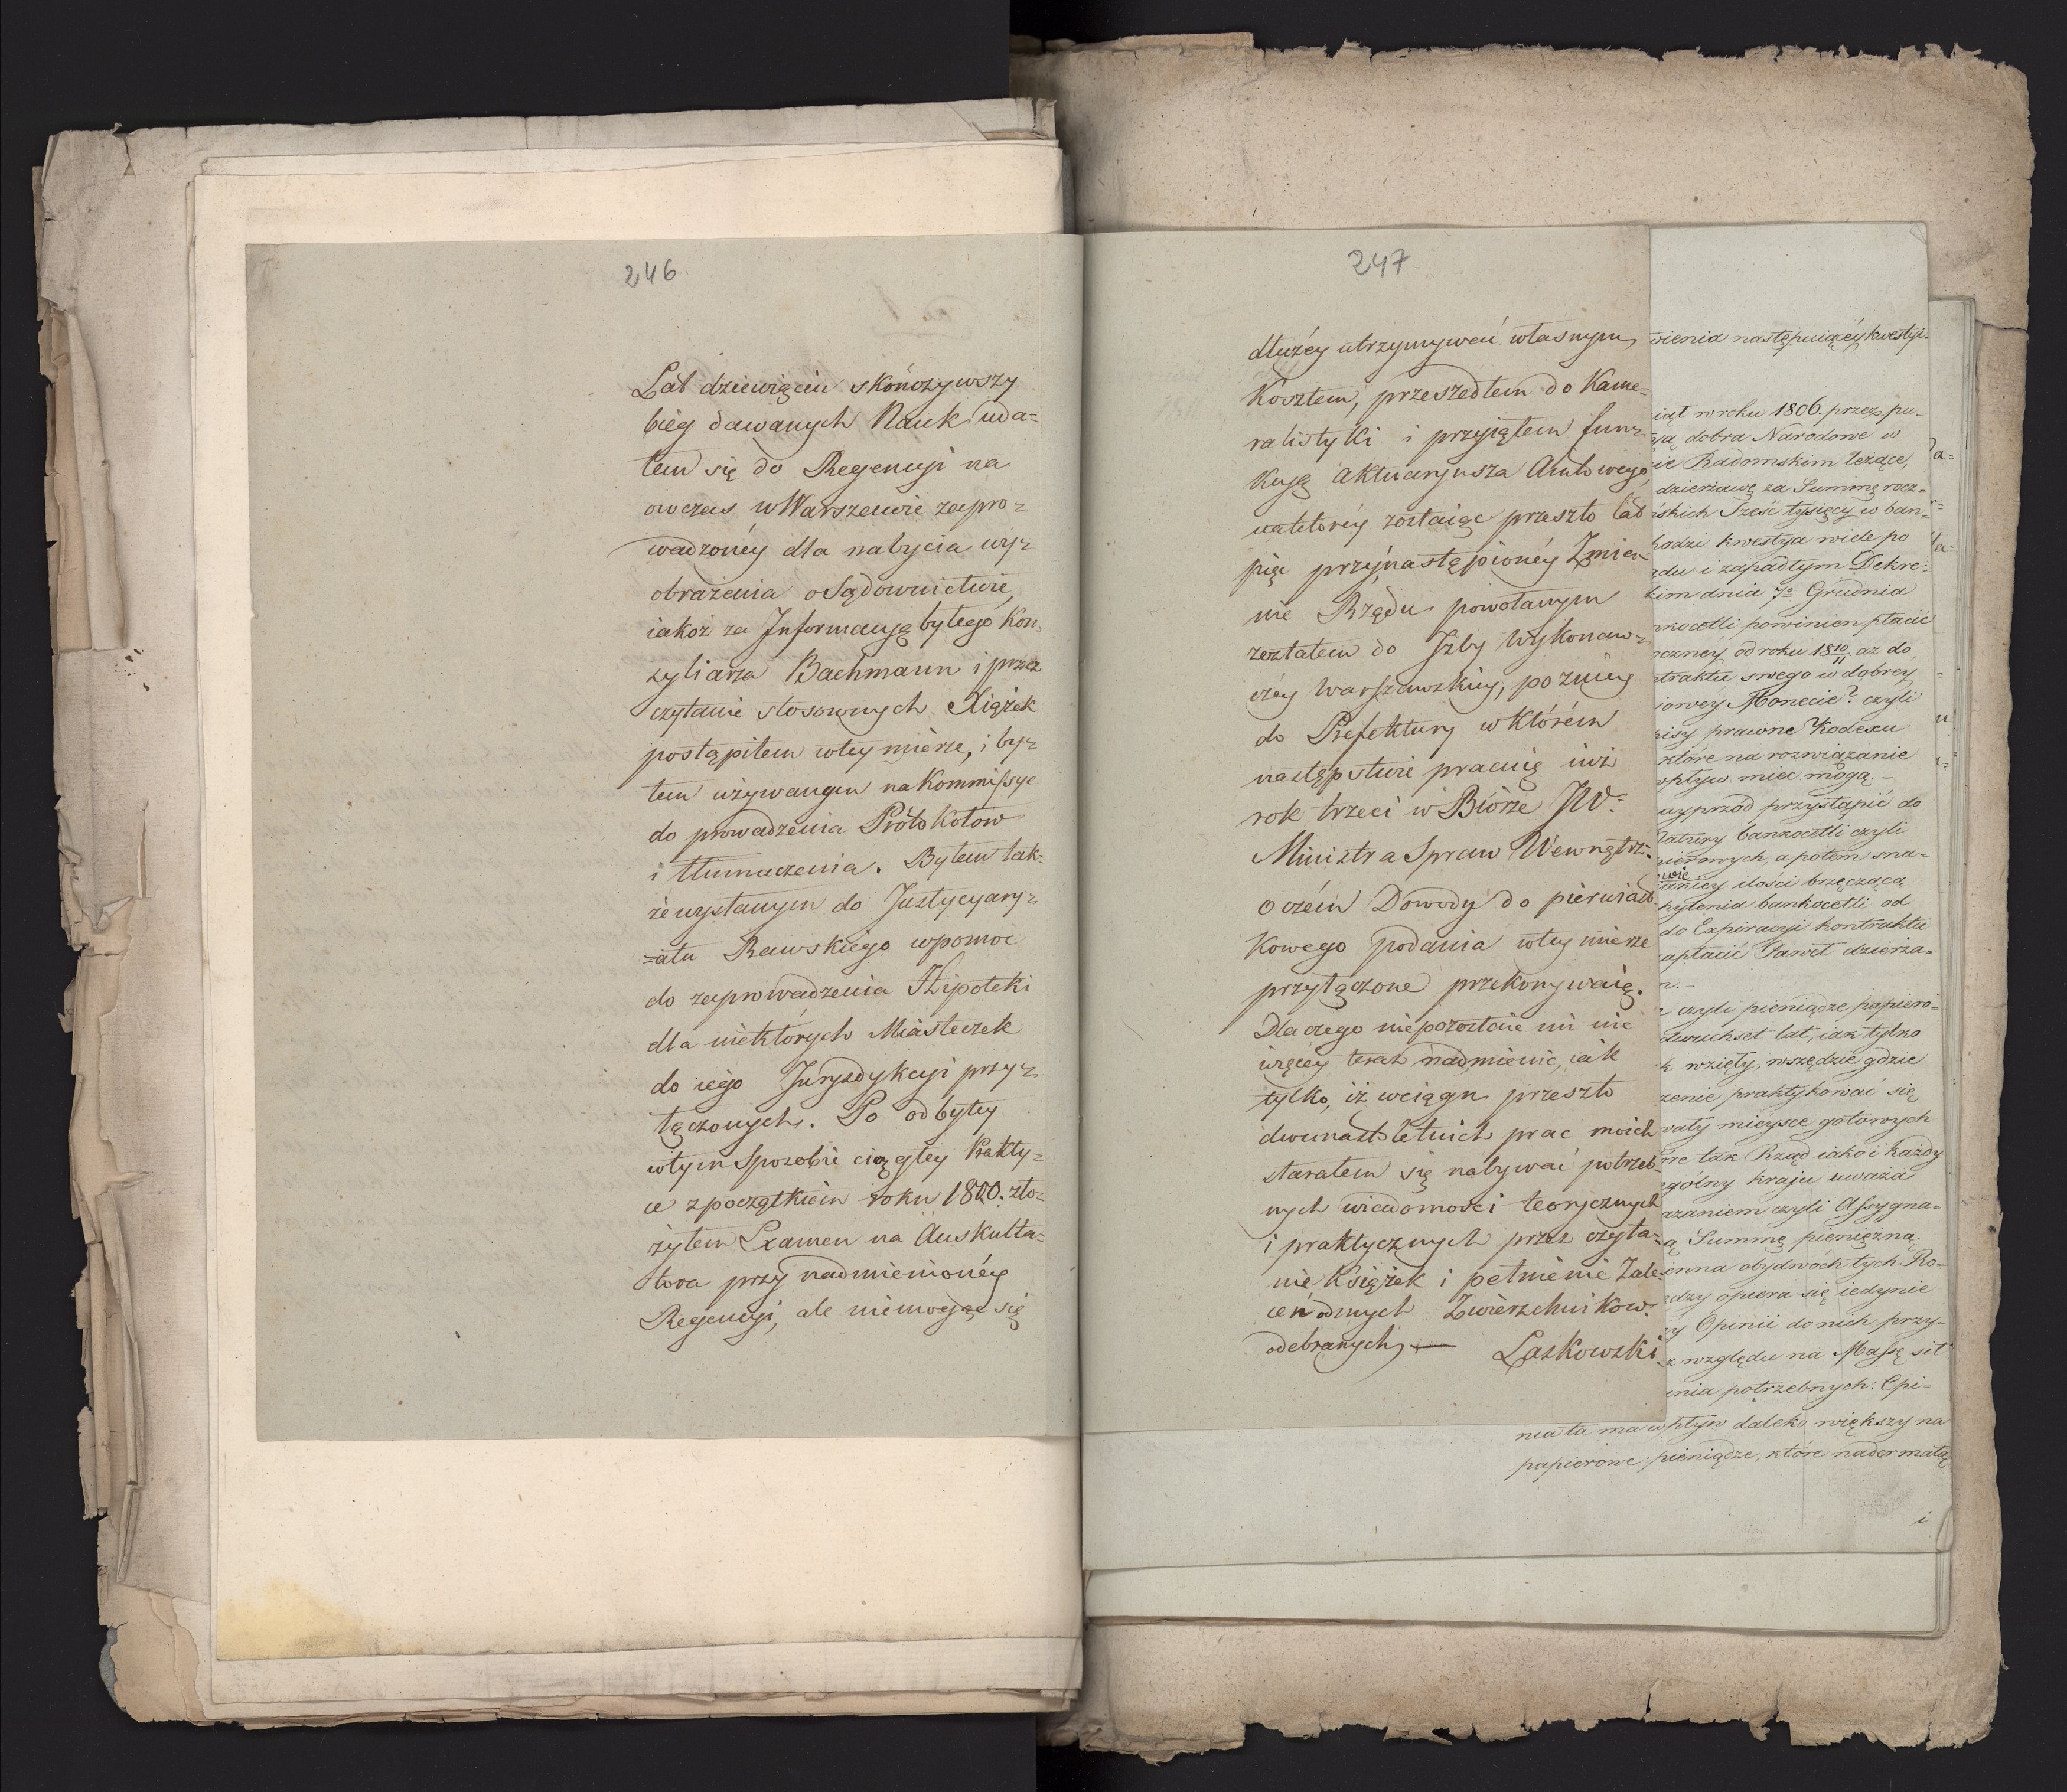 246
Lat dziewięciu skończywszy
bieg dawanych Nauk uda-
łem się do Regencyi na
owczas w Warszawie zapro-
wadzonéy dla nabycia wy-
obrażenia o Sądownictwie,
iakoż za Informacyą byłego Kon-
syliarza Bachmann i przez
czytanie stosownych Xiążek
postąpiłem wtey mierze, i by-
łem używanym na Kommissye
do prowadzenia Protokołow
i tłumaczenia. Byłem tak-
że wysłanym do Justycyary-
-atu Rawskiego wpomoc
do zaprowadzenia Hipoteki
dla niektórych Miasteczek
do iego Juryzdykcyi przy-
łączonych. Po odbytey
wtym Sposobie ciągłey Prakty-
ce z początkiem roku 1800. zło-
żyłem Examen na Auskulta-
tora przy nadmienionéy
Regencyi, ale niemogąc się
247
dłużéy utrzymywać własnym
Kosztem, przeszedłem do Kame-
ralistyki i przyiąłem funk-
kcyą Aktuaryusza Amtowego,
naktoréy zostaiąc przeszło lat
pięć przy nastąpionéy Zmia-
nie Rządu powołanym
zostałem do Izby Wykonaw-
czéy Warszawskiey, pozniéy
do Prefektury w którém
następstwie pracuię iuż
rok trzeci w Biórze JW.
Ministra Spraw Wewnętrz:
o czém Dowody do pierwiast-
kowego podania wtey mierze
przyłączone przekonywaią.
Dlaczego niepozostaie mi nic
więcéy teraz nadmienić, iak
tylko, iż wciągu przeszło
dwunastoletnich prac moich
starałem się nabywać potrzeb-
nych wiadomości teorycznych
i praktycznych przez czyta-
nie Książek i pełnienie Zale-
ceń odmych Zwierzchnikow
odebranych, —
Laskowski
wienia następuiącéy kwestyi.
w roku 1806. przez pu-
dobra Narodowe w
Radomskim leżące,
dzierżawę za Summę rocz-
Sześć tysięcy w ban-
kwestya wiele po
i zapadłym Dekre-
dnia 7o Grudnia
powinien płacić
od roku 18 10/11 aż do
swego w dobrey
Monecie? czyli
prawne Kodexu
które na rozwiązanie
wpływ mieć mogą. –
przystąpić do
Natury bankocetli czyli
a potem zna-
wie
ilości brzęczącą
bankocetli od
do Expiracyi kontraktu
zapłacić Paweł dzierża-
czyli pieniądze papiero-
lat, iak tylko
wzięty, wszędzie gdzie
praktykować się
mieysce gotowych
tak Rząd iako i każdy
kraju uważa
czyli Assygna-
Summę pieniężną.
obydwóch tych Ro-
opiera się iedynie
Opinii do nich przy-
względu na Massę sił
potrzebnych. Opi-
nia ta ma wpływ daleko większy na
papierowe pieniądze, które nader małą
i